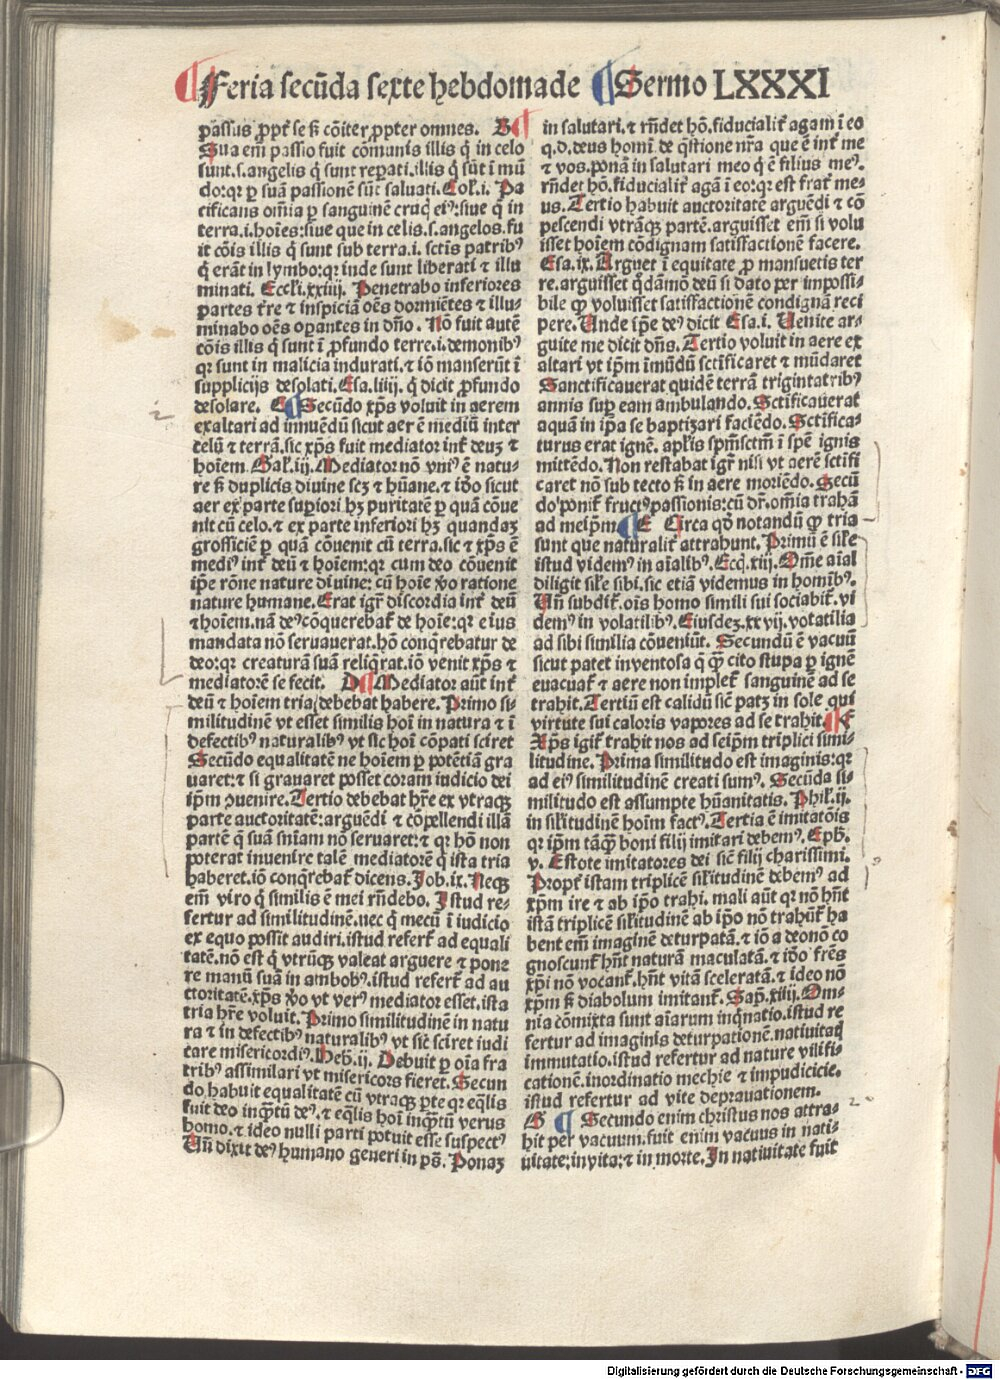 Feria secūda sexte hebdomade Sermo LXXXI
passus ꝓpt̄ se ꝫ cōiter ꝓpter omnes. B
Sua em̄ passio fuit cōmunis illis q̄ in celo
sunt.s.angelis q̄ sunt repati.illis q̄ sūt ī mū
do:qꝛ ꝑ suā passionē sūt saluati.Col.i. Pa
cificans om̄ia ꝑ sanguinē cruc̄ eiꝰ:siue q̄ in
terra.i.hoīes:siue que in celis.s.angelos.fu
it cōis illis q̄ sunt sub terra.i. sctīs patribꝰ
q̄ erāt in lymbo:qꝛ inde sunt liberati ⁊ illu
minati. Eccli.xxiiij. Penetrabo inferiores
partes t̄re ⁊ inspiciā oēs dormiētes ⁊ illu-
minabo oēs sperantes in dn̄o. Nō fuit autē
cōis illis q̄ sunt ī ꝓfundo terre.i.demonibꝰ
qꝛ sunt in malicia indurati.⁊ iō manserūt ī
supplicijs desolati.Esa.liiij. q̄ dicit ꝓfundo
desolare. C Secūdo xp̄s voluit in aerem
exaltari ad innuēdū sicut aer ē mediū inter
celū ⁊ terrā.sic xp̄s fuit mediator int̄ deuꝫ ⁊
hoīem.Gal.iij.Mediator nō vniꝰ ē natu-
re ꝫ duplicis diuine scꝫ ⁊ hūane.⁊ iō sicut
aer ex parte supiori hꝫ puritatē ꝑ quā cōue
nit cū celo.⁊ ex parte inferiori hꝫ quandaꝫ
grossiciē ꝑ quā cōuenit cū terra.sic ⁊ xp̄s ē
mediꝰ int̄ deū ⁊ hoīem:qꝛ cum deo cōuenit
ip̄e rōne nature diuine: cū hoīe ꝟo ratione
nature humane.Erat igr̄ discordia int̄ deū
⁊hoīem.nā deꝰcōquerebat̄ de hoīe:qꝛ eius
mandata nō seruauerat.hō conq̄rebatur de
deo:qꝛ creaturā suā reliq̄rat.iō venit xp̄s ⁊
mediatorē se fecit. D Mediator aūt int̄
deū ⁊ hoīem tria debebat habere.Primo si-
militudinē vt esset similis hoī in natura ⁊ ī
defectibꝰ naturalibꝰ vt sic hoī cōpati sciret
Secūdo equalitatē ne hoīem ꝑ potētiā gra
uaret:⁊ si grauaret posset coram iudicio dei
ip̄m ꝯuenire.Tertio debebat hr̄e ex vtraqꝫ
parte auctoritatē:arguēdi ⁊ cōpellendi illā
partē q̄ suā sniam nō seruaret:⁊ qꝛ hō non
poterat inuenire talē mediatorē q̄ ista tria
haberet.iō conq̄rebat̄ dicens.Job.ix.Neqꝫ
em̄ viro q̄ similis ē mei rn̄debo. Istud re-
fertur ad similitudinē.nec q̄ mecū ī iudicio
ex equo possit audiri.istud refert̄ ad equali
tatē.nō est q̄ vtrūqꝫ valeat arguere ⁊ pone
re manū suā in ambobꝰ.istud refert̄ ad au
ctoritatē.xp̄s ꝟo vt verꝰ mediator esset.ista
tria hr̄e voluit. Primo similitudinē in natu
ra ⁊ in defectibꝰ naturalibꝰ vt sic sciret iudi
care misericordiꝰ.Heb.ij. Debuit ꝑ oīa fra
tribꝰ assimilari vt misericors fieret.Secun
do habuit equalitatē cū vtraqꝫ ꝑte qꝛ eq̄lis
fuit deo inq̄ntū deꝰ.⁊ eq̄lis hoī inq̄ntū verus
homo.⁊ ideo nulli parti potuit esse suspectꝰ
Un̄ dixit deꝰ humano generi in ps̄. Ponaꝫ
in salutari.⁊ rn̄det hō.fiducialit̄ agam ī eo
q.d.deus homī de q̄stione nr̄a que ē int̄ me
⁊ vos.ponā in salutari meo q̄ ē filius meꝰ.
rn̄det hō.fiducialit̄ agā ī eo:qꝛ est frat̄ me-
us.Tertio habuit auctoritatē arguēdi ⁊ cō
pescendi vtrāqꝫ partē.arguisset em̄ si volu
isset hoīem cōdignam satisfactionē facere.
Esa.ix.Arguet ī equitate ꝓ mansuetis ter
re.arguisset q̄dāmō deū si dato per impossi-
bile ꝙ voluisset satisfactionē condignā reci
pere.Unde ip̄e deꝰ dicit Esa.i. Uenite ar-
guite me dicit dn̄s.Tertio voluit in aere ex
altari vt ip̄m īmūdū sctīficaret ⁊ mūdaret
Sanctificauerat quidē terrā triginta tribꝰ
annis sup eam ambulando.Sctīficauerat
aquā in ip̄a se baptizari faciēdo.Sctīfica-
turus erat ignē. apl̄is spm̄sctm̄ ī spē ignis
mittēdo.Non restabat igr̄ nisi vt aerē sctīfi
caret nō sub tecto ꝫ in aere moriēdo.Secū
do ponit̄ fructꝰpassionis:cū dr̄.om̄ia trahā
ad meip̄m E Circa qd̄ notandū ꝙ tria
sunt que naturalit̄ attrahunt.Primū ē sil̄e
istud videmꝰ in aīalibꝰ.Eccꝉ.xiij.Om̄e aīal
diligit sil̄e sibi.sic etiā videmus in homībꝰ.
Un̄ subdit̄.oīs homo simili sui sociabit̄.vi
demꝰ in volatilibꝰ.Eiusdeꝫ.xxvij.volatilia
ad sibi similia cōueniūt. Secundū ē vacuū
sicut patet inventosa q̄ ꝙ̄ cito stupa ꝑ ignē
euacuat̄ ⁊ aere non implet̄ sanguinē ad se
trahit.Tertiū est calidū sic̄ patꝫ in sole qui
virtute sui caloris vapores ad se trahit. F
Xp̄s igit̄ trahit nos ad seip̄m triplici simi-
litudine. Prima similitudo est imaginis:qꝛ
ad eiꝰ similitudinē creati sumꝰ. Secūda si-
militudo est assumpte hūanitatis. Phil.ij.
in sil̄itudinē hoīm factꝰ.Tertia ē imitatōis
qꝛ ip̄m tāꝙ̄ boni filij imitari debemꝰ.Eph.
v. Estote imitatores dei sic̄ filij charissimi.
Propt̄ istam triplicē sil̄itudinē debemꝰ ad
xp̄m ire ⁊ ab ip̄o trahi. mali aūt qꝛ nō hn̄t
istā triplicē sil̄itudinē ab ip̄o nō trahūt̄ ha
bent em̄ imaginē deturpatā.⁊ iō a deo nō co
gnoscunt̄ hn̄t naturā maculatā.⁊ iō fr̄es
xp̄i nō vocant̄.hn̄t vitā sceleratā.⁊ ideo nō
xp̄m ꝫ diabolum imitant̄. Sap̄.xiiij.Om-
nia cōmixta sunt aīarum inq̄natio.istud re
fertur ad imaginis deturpationē.natiuitatꝫ
immutatio.istud refertur ad nature vilifi-
cationē.inordinatio mechie ⁊ impudicicie.
istud refertur ad vite deprauationem.
G Secundo enim christus nos attra-
hit per vacuum.fuit enim vacuus in nati-
uitate:in vita:⁊ in morte.In natiuitate fuit
Digitalisierung gefördert durch die Deutsche Forschungsgemeinschaft - DFG